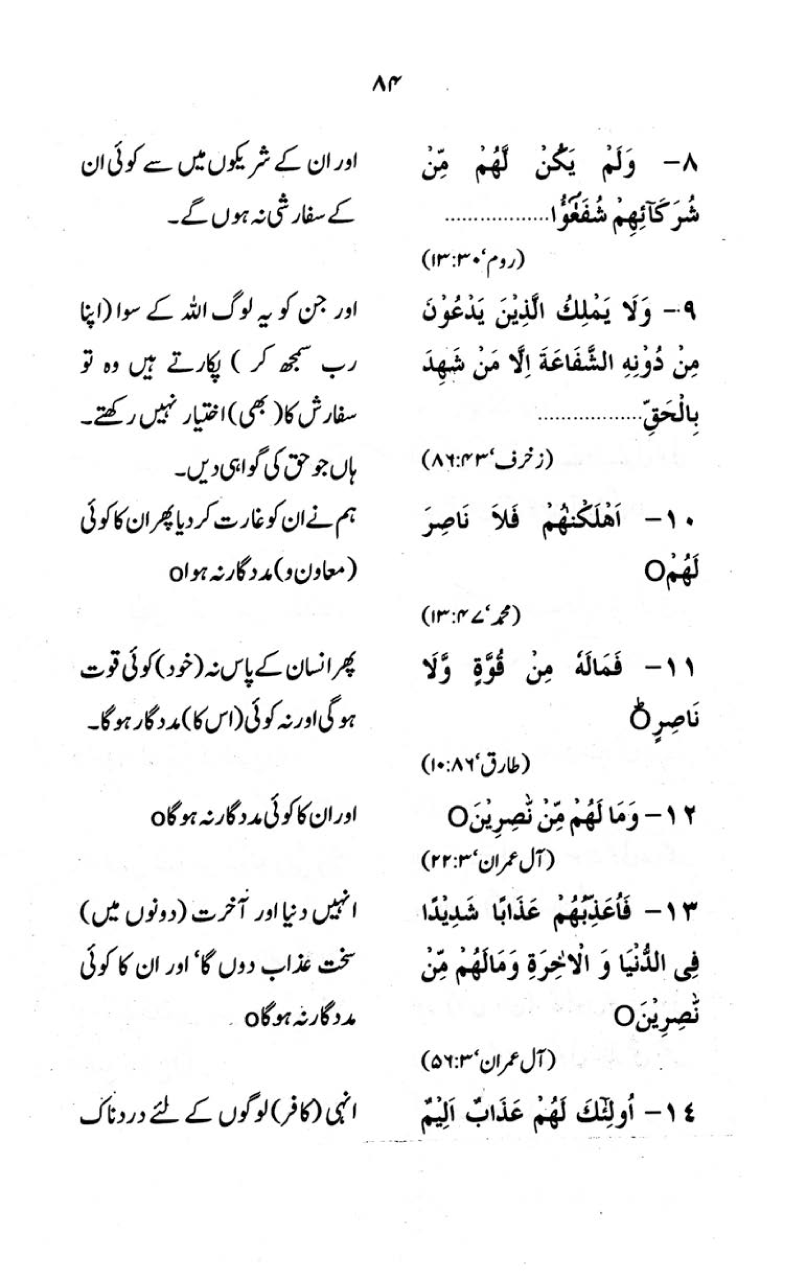 ۸۴
۸- وَلَمْ يَكُنْ لَّهُمْ مِّنْ
شُرَكَآئِهِمْ شُفَعٰٓؤُا..................
(روم‘۱۳:۳۰)
۹- وَلَا يَمْلِكُ الَّذِيْنَ يَدْعُوْنَ
مِنْ دُوْنِهِ الشَّفَاعَةَ اِلَّا مَنْ شَهِدَ
بِالْحَقِّ..................
(زخرف‘۸۶:۴۳)
۱۰- اَهْلَكْنٰهُمْ فَلاَ نَاصِرَ
لَهُمْO
(محمد‘۱۳:۴۷)
۱۱- فَمَالَهٗ مِنْ قُوَّةٍ وَّلَا
نَاصِرٍO
(طارق‘۱۰:۸۶)
۱۲- وَمَا لَهُمْ مِّنْ نّٰصِرِيْنَO
(آل عمران‘۲۲:۳)
۱۳- فَاُعَذِّبُهُمْ عَذَابًا شَدِيْدًا
فِى الدُّنْيَا وَ الْاٰخِرَةِ وَمَالَهُمْ مِّنْ
نّٰصِرِيْنَO
(آل عمران‘۵۶:۳)
۱٤- اُولٰٓئِكَ لَهُمْ عَذَابٌ اَلِيْمٌ
اور ان کے شریکوں میں سے کوئی ان
کے سفارشی نہ ہوں گے۔
اور جن کو یہ لوگ اللہ کے سوا (اپنا
رب سمجھ کر ) پکارتے ہیں وہ تو
سفارش کا (بھی) اختیار نہیں رکھتے۔
ہاں جو حق کی گواہی دیں۔
ہم نے ان کو غارت کر دیا پھر ان کا کوئی
(معاون و) مددگار نہ ہواo
پھر انسان کے پاس نہ (خود) کوئی قوت
ہو گی اور نہ کوئی (اس کا) مددگار ہو گا۔
اور ان کا کوئی مددگار نہ ہو گاo
انہیں دنیا اور آخرت (دونوں میں)
سخت عذاب دوں گا‘ اور ان کا کوئی
مددگار نہ ہو گاo
انہی (کافر) لوگوں کے لئے دردناک